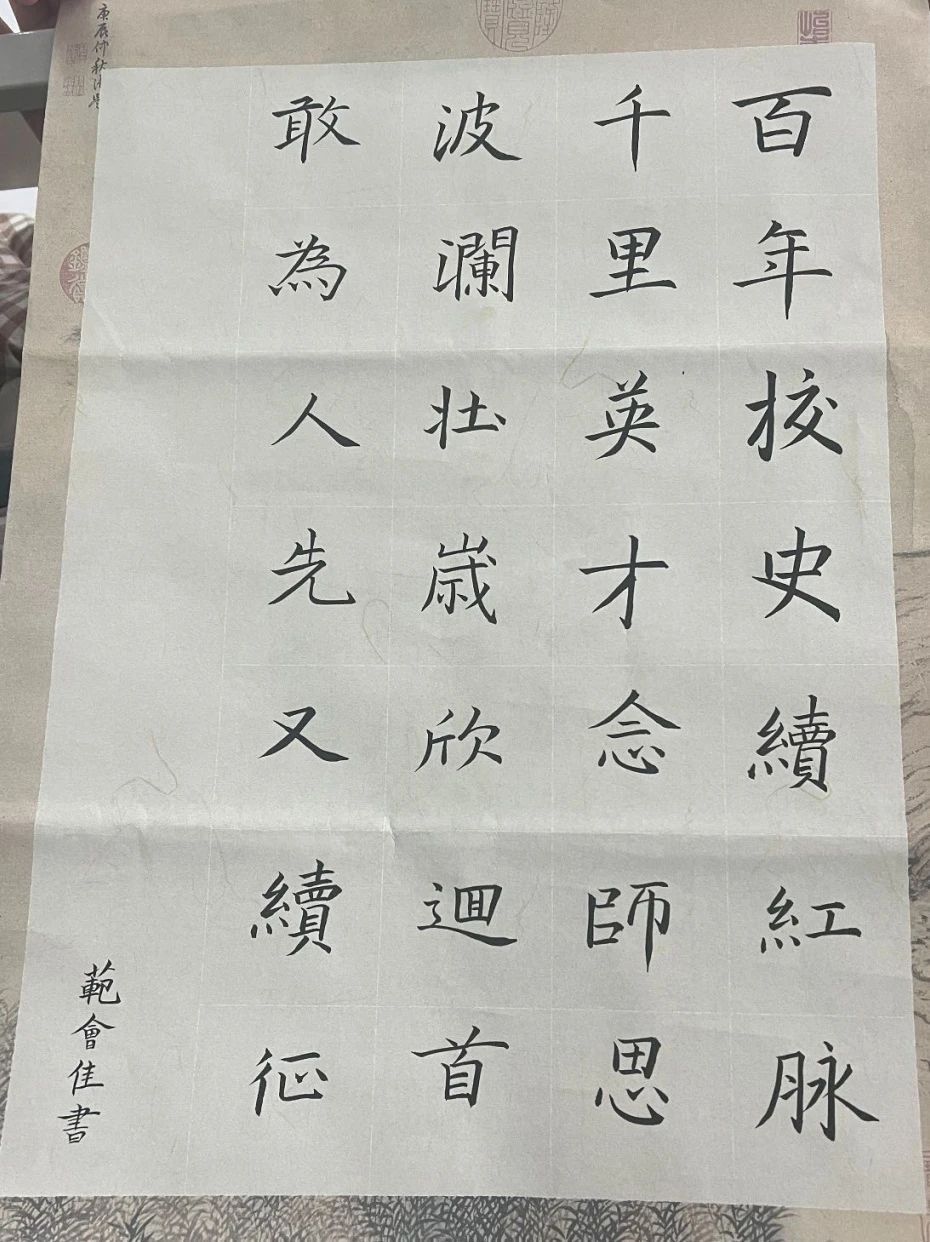 百年校史續紅脉
千里英才念師思
波瀾壮歲欣迴首
敢為人先又續征
範會佳書
庚辰仲秋